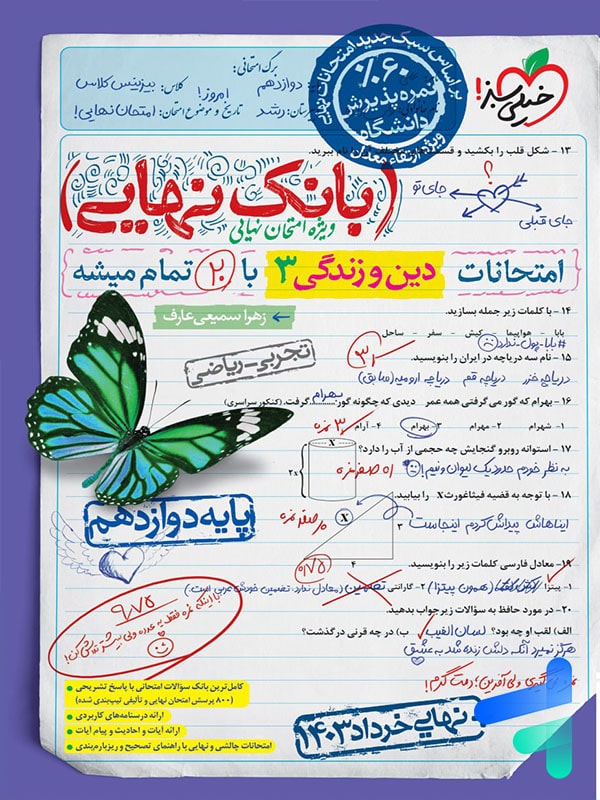 برگ امتحانی:
دوازدهم
کلاس: بیزینس کلاس
امروز!
رشد
تاریخ و موضوع امتحان: (امتحان نهایی!)
براساس سبک جدید امتحانات نهایی
۶۰%
نمره پذیرش
دانشگاه
ویژه ارتقاء معدل
خیلی سبز!
۱۳ - شکل قلب را بکشید و ببرید.
؟
جای تو
جای قبلی
(بانک نهایی)
ویژه امتحان نهایی
امتحانات دین و زندگی ۳ با ۲۰ تمام میشه
زهرا سمیعی عارف
تجربی-ریاضی
۱۴ - با کلمات زیر جمله بسازید.
بابا - هواپیما - کیش - سفر - ساحل
#بابا-پول-ندارد
۱۵ - نام سه دریاچه در ایران را بنویسید.
دریاچه خزر دریاچه قم دریاچه ارومیه (سابق)
۱۶ - بهرام که گور می گرفتی همه عمر دیدی که چگونه گور بهرام گرفت. (کنکور سراسری)
۱- شهرام ۲- مهرام ۳- بهرام ۴- آرام
۱۷ - استوانه روبرو گنجایش چه حجمی از آب را دارد؟
به نظر خودم حدود یک لیوان و نیم!
X
2X
۱۸ - با توجه به قضیه فیثاغورث X را بیابید.
ایناهاش پیداش کردم اینجاست
X
۳
۴
۰/۷۵
پایه دوازدهم
۱۹- معادل فارسی کلمات زیر را بنویسید.
۱- پیتزا (همون پیتزا) ۲- گارانتی تضمین (معادل ندارد. تضمین خودش عربی است.)
۲۰- در مورد حافظ به سؤالات زیر جواب بدهید.
الف) لقب او چه بود؟ لسان الغیب ب) در چه قرنی درگذشت؟
هرگز نمیرد آنکه دلش زنده شد به عشق
۹/۷۵
با اینکه نمره فقط یه عدده ولی بیشتر تلاش کن!
نمره نمی‌گیری ولی آفرین؛ دمت گرم!
کامل‌ترین بانک سؤالات امتحانی با پاسخ تشریحی
(۸۰۰ پرسش امتحان نهایی و تألیفی تیپ‌بندی شده)
ارائه درسنامه‌های کاربردی
ارائه آیات و احادیث و پیام آیات
امتحانات چالشی و نهایی با راهنمای تصحیح و ریزبارم‌بندی
+ نهایی خرداد ۱۴۰۳